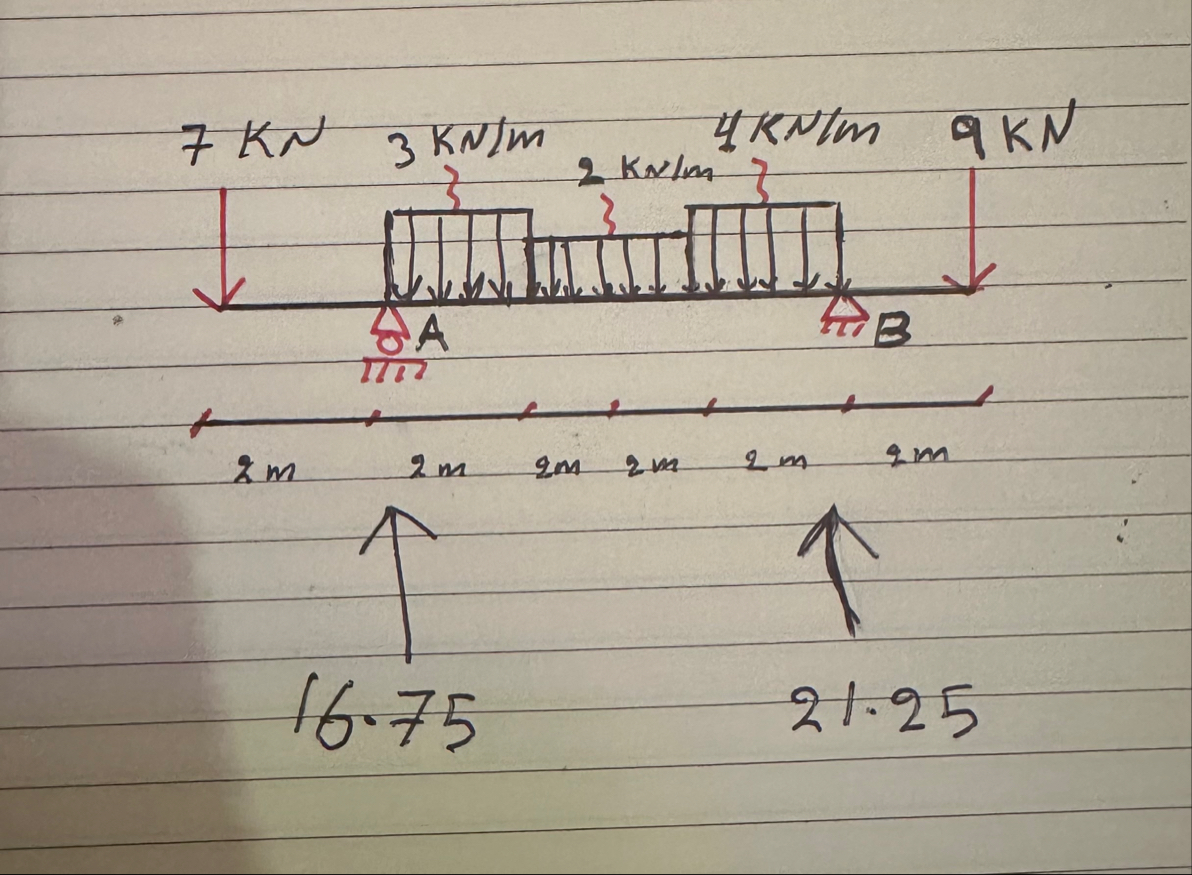 7 KN 3 KN/m 2 KN/m 4 KN/m 9 KN
A B
2 m 2 m 2m 2 m 2 m 2m
16.75 21.25